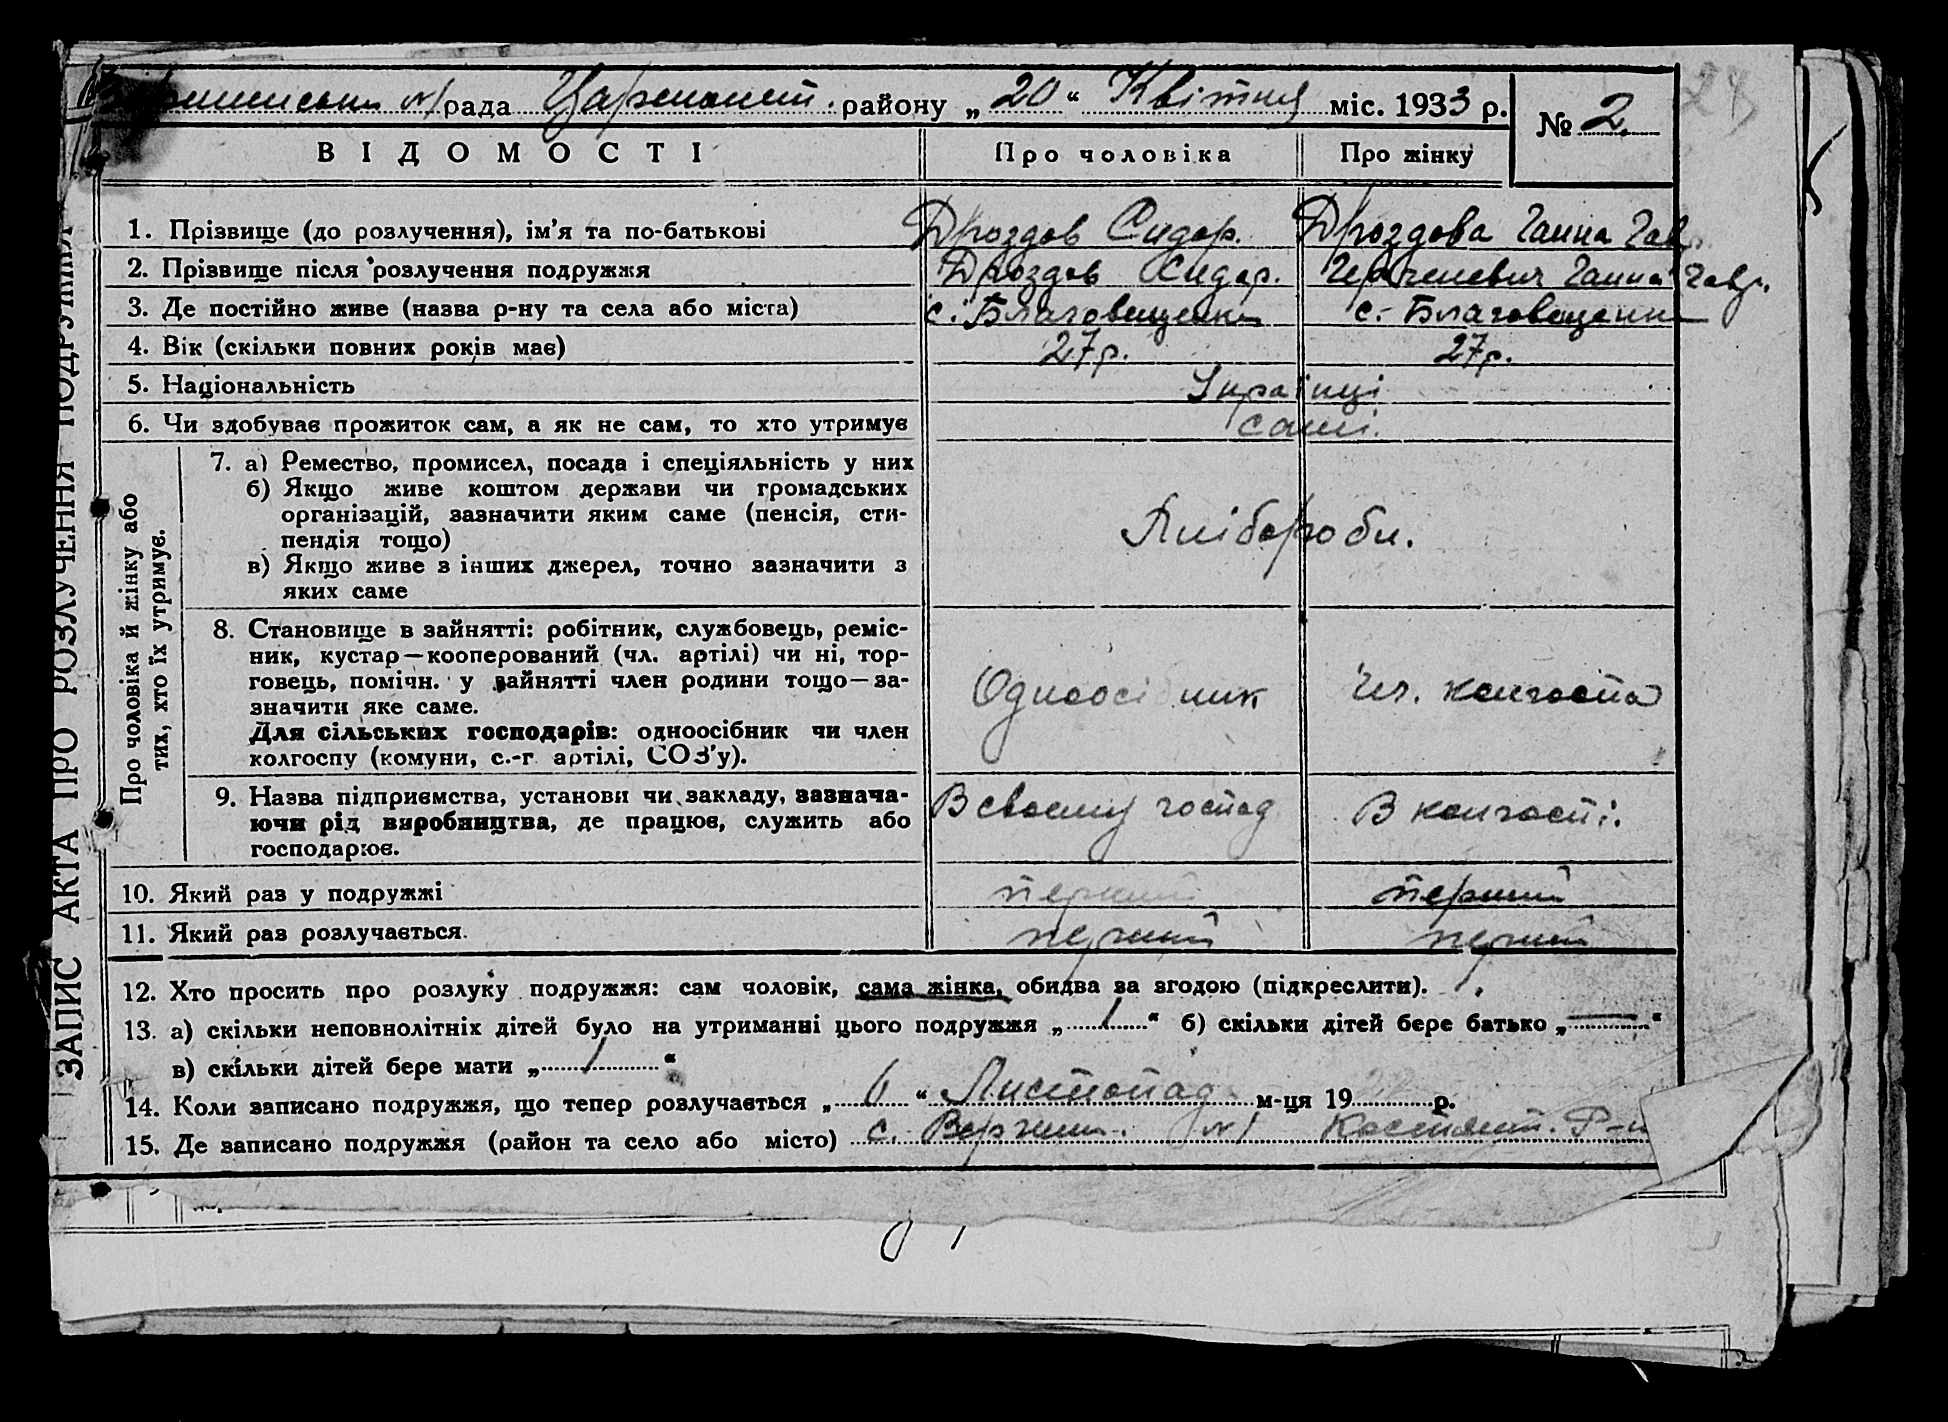 рада район у „ 20 “ Квітня міс. 1933 р.
№ 2
24
ВІДОМОСТІ Про чоловіка Про жінку
1. Прізвище (до розлучення), ім’я та по-батькові Дроздов Сидор. Дроздова Ганна Гав
2. Прізвище після розлучення подружжя Дроздов Сидор. Ганна Гавр.
3. Де постійно живе (назва р-ну та села або міста) с. Благовещенка с. Благовещенка
4. Вік (скільки повних років має) 27 р. 27 р.
5. Національність Українці
6. Чи здобував прожиток сам, а як не сам, то хто утримує самі.
Про чоловіка й жінку або тих, хто їх утримує.
7. а) Ремество, промисел, посада і спеціяльність у них
б) Якщо живе коштом держави чи громадських
організацій, зазначити яким саме (пенсія, сти-
пендія тощо)
в) Якщо живе з інших джерел, точно зазначити з
яких саме
Хлібороби.
8. Становище в зайнятті: робітник, службовець, реміс-
ник, кустар—кооперований (чл. артілі) чи ні, тор-
говець, помічн. у зайнятті член родини тощо—за-
значити яке саме.
Для сільських господарів: одноосібник чи член
колгоспу (комуни, с.-г артілі, СОЗ’у).
Одноосібник Чл. колгоспа
9. Назва підприємства, установи чи закладу, зазнача-
ючи рід виробництва, де працює, служить або
господарює.
В своему господ В колгоспі.
10. Який раз у подружжі перший перший
11. Який раз розлучається. перший перший
12. Хто просить про розлуку подружжя: сам чоловік, сама жінка, обидва за згодою (підкреслити).
13. а) скільки неповнолітніх дітей було на утриманні цього подружжя „ 1 “ б) скільки дітей бере батько „ — “
в) скільки дітей бере мати „ 1 “
14. Коли записано подружжя, що тепер розлучається „ 6 “ Листопад м-ця 19 р.
15. Де записано подружжя (район та село або місто) с. №1 Р-н
ЗАПИС АКТА ПРО РОЗЛУЧЕННЯ ПОДРУЖЖЯ